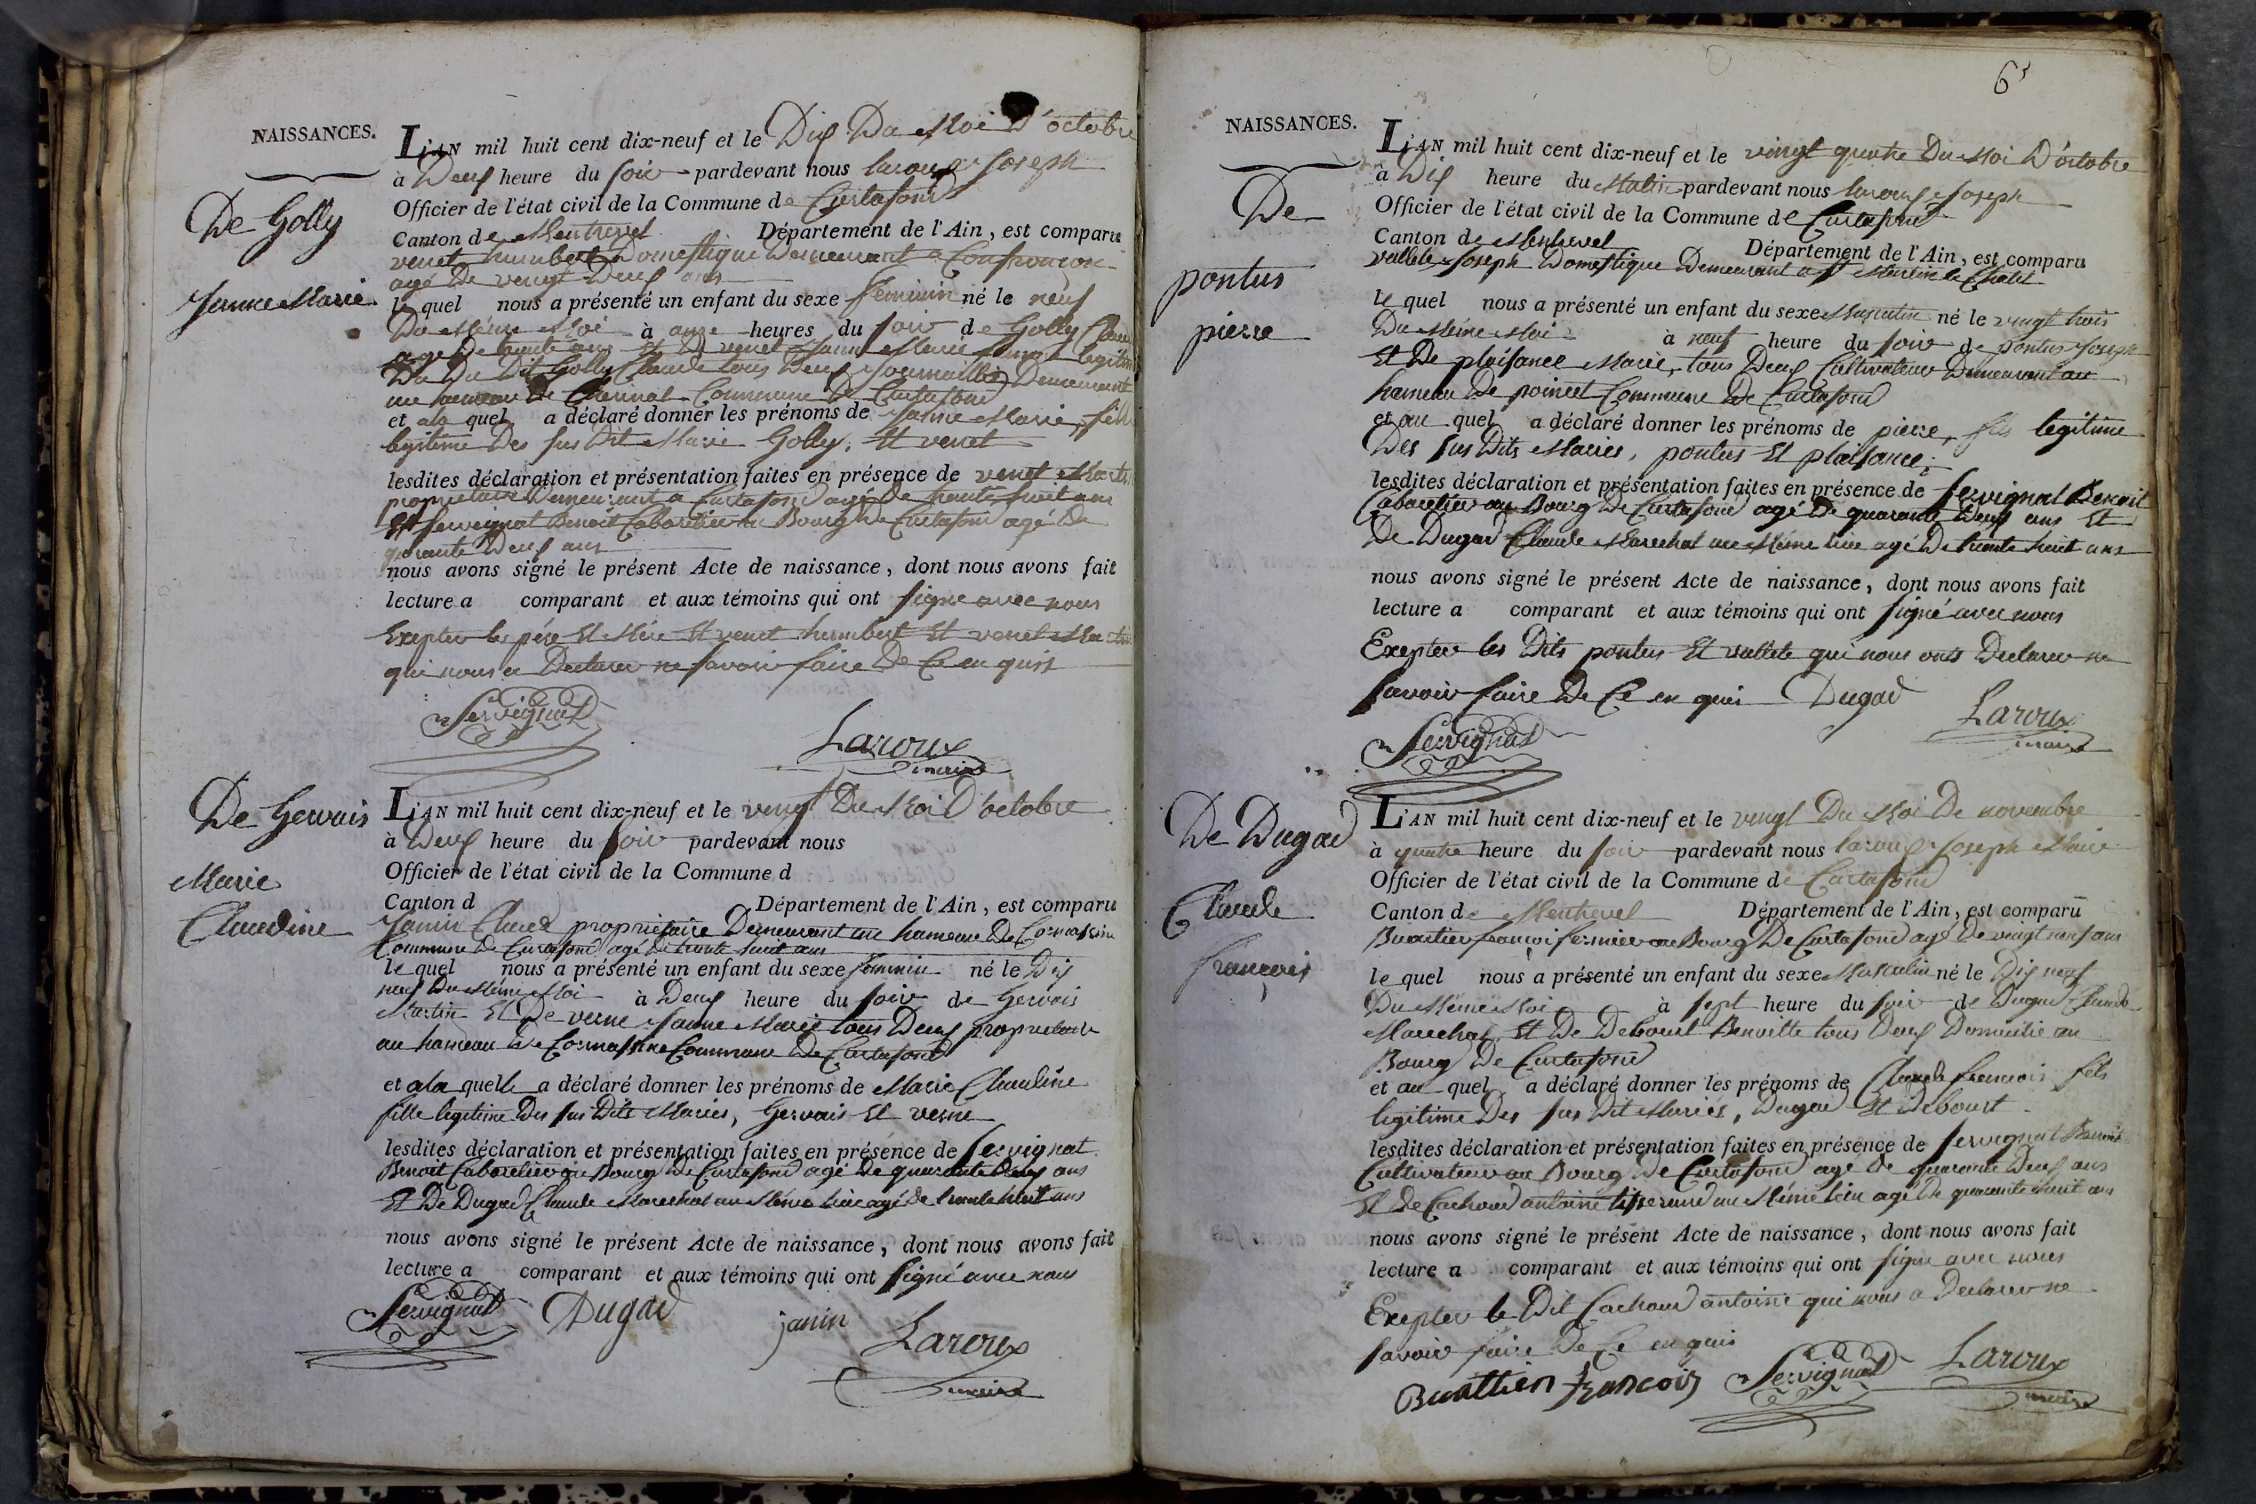 NAISSANCES.
De Golly
Janne Marie
L'AN mil huit cent dix-neuf et le Dix Du Moi D'octobre
à Deux heure du soir pardevant nous laroux Joseph
Officier de l'état civil de la Commune de Curtafond
Canton de Montrevel Département de l'Ain, est comparu
venet humbert Domestique Demeurant a Confrançon
agé de vengt Deux ans
le quel nous a présenté un enfant du sexe feminin né le neuf
Du Méme Moi à onze heures du soir de Golly Claude
agé De trente ans Et De venet Janne Marie legitime
Du Dit Golly Claude tous Deux Journallié Demeurant
au hameau de Commune De Curtafond
et ala quel a déclaré donner les prénoms de Janne Marie, fille
legitime Des sus Dit Marié Golly, Et venet
lesdites déclaration et présentation faites en présence de venet
propriétaire Demeurant a Curtafond agé De trante huit ans
Et Servignat Benoit Cabaretier au Bourg De Curtafond agé De
quarante Deux ans
nous avons signé le présent Acte de naissance, dont nous avons fait
lecture a comparant et aux témoins qui ont signé avec nous
Exepter les pére Et Mére Et venet humbert Et venet
qui nous a Declarer ne savoir faire De Ce en quis
Servignat
Laroux
maire
De Gervais
Marie
Claudine
L'AN mil huit cent dix-neuf et le vengt Du Moi D'octobre
à Deux heure du soir pardevant nous
Officier de l'état civil de la Commune d
Canton d Département de l'Ain, est comparu
Janin Claude propriétaire Demeurant au hameau De
Commune De Curtafond agé de trente huit ans
le quel nous a présenté un enfant du sexe feminin né le Dix
neuf Du Méme Moi à Deux heure du soir de Gervais
Martin Et De verne Janne Marie tous Deux propriétaire
au hameau de Commune De Curtafond
et ala quelle a déclaré donner les prénoms de Marie Claudine
fille legitime Des sus Dits Mariés, Gervais Et verne
lesdites déclaration et présentation faites en présence de Servignat
Benoit Cabaretier au Bourg De Curtafond agé De quarante Deux ans
Et De Dugad Claude Marechal au Méme lieu agé de trante huit ans
nous avons signé le présent Acte de naissance, dont nous avons fait
lecture a comparant et aux témoins qui ont signé avec nous
Servignat Dugad janin Laroux
maire
65
NAISSANCES.
De
pontus
pierre
L'AN mil huit cent dix-neuf et le vingt quatre Du Moi D'octobre
à Dix heure du Matin pardevant nous laroux Joseph
Officier de l'état civil de la Commune de Curtafond
Canton de Montrevel Département de l'Ain, est comparu
vallete Joseph Domestique Demeurant a St Martin le Chatel
le quel nous a présenté un enfant du sexe Masculin né le vingt trois
Du Méme Moi à neuf heure du soir de pontus Joseph
Et De plaisance Marie, tous Deux Cultivateur Demeurant au
hameau De Commune De Curtafond
et au quel a déclaré donner les prénoms de pierre, fils legitime
Des sus Dits Mariés, pontus Et plaisance,
lesdites déclaration et présentation faites en présence de Servignat Benoit
Cabaretier au Bourg De Curtafond agé De quarante Deux ans Et
De Dugad Claude Marechal au Méme lieu agé De trante huit ans
nous avons signé le présent Acte de naissance, dont nous avons fait
lecture a comparant et aux témoins qui ont signé avec nous
Exepter les Dits pontus Et vallete qui nous onts Declarer ne
savoir faire De Ce en quis Dugad
Servignat
Laroux
maire
De Dugad
Claude
françois
L'AN mil huit cent dix-neuf et le vengt Du Moi De novembre
à quatre heure du soir pardevant nous laroux Joseph Maire
Officier de l'état civil de la Commune de Curtafond
Canton de Montrevel Département de l'Ain, est comparu
Buattier françoi fermier au Bourg De Curtafond agé De vengt neuf ans
le quel nous a présenté un enfant du sexe Masculin né le Dix neuf
Du Méme Moi à sept heure du soir de Dugad Claude
Marechal, Et De Debourt Benoitte tous Deux Domicilié au
Bourg De Curtafond
et au quel a déclaré donner les prénoms de Claude françois fils
legitime Des sus Dit Mariés, Dugad Et Debourt
lesdites déclaration et présentation faites en présence de Servignat Benoit
Cultivateur au Bourg De Curtafond agé De quarante Deux ans
Et de Cachoud antoine tisserand au Méme lieu agé De quarante huit ans
nous avons signé le présent Acte de naissance, dont nous avons fait
lecture a comparant et aux témoins qui ont signé avec nous
Exepter le Dit Cachoud antoine qui nous a Declarer ne
savoir faire De Ce en quis
Buattier francois Servignat Laroux
maire